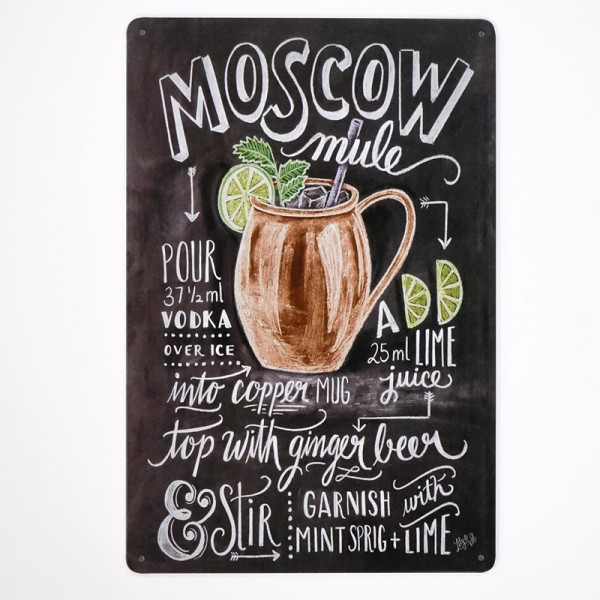 MOSCOW
mule
POUR
37 1/2 ml
VODKA
OVER ICE
into copper MUG
ADD
25 ml LIME
juice
top with ginger beer
& Stir
GARNISH with
MINT SPRIG + LIME